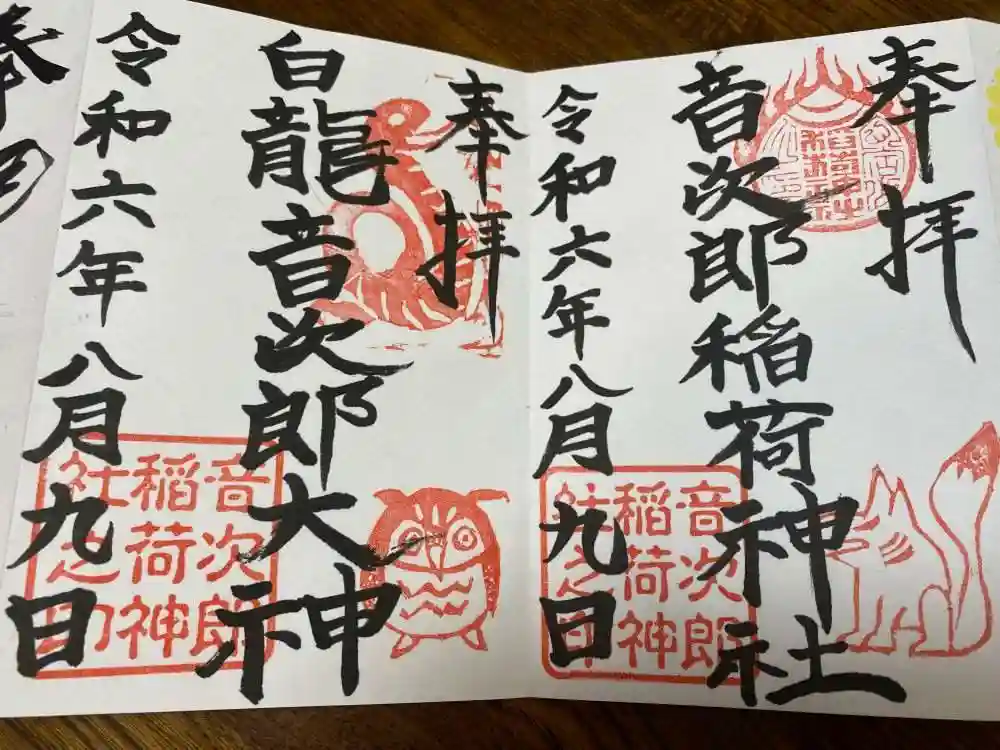 奉拝
音次郎稲荷神社
令和六年八月九日
音次郎
稲荷神
社之印
奉拝
白龍音次郎大神
令和六年八月九日
音次郎
稲荷神
社之印
奉